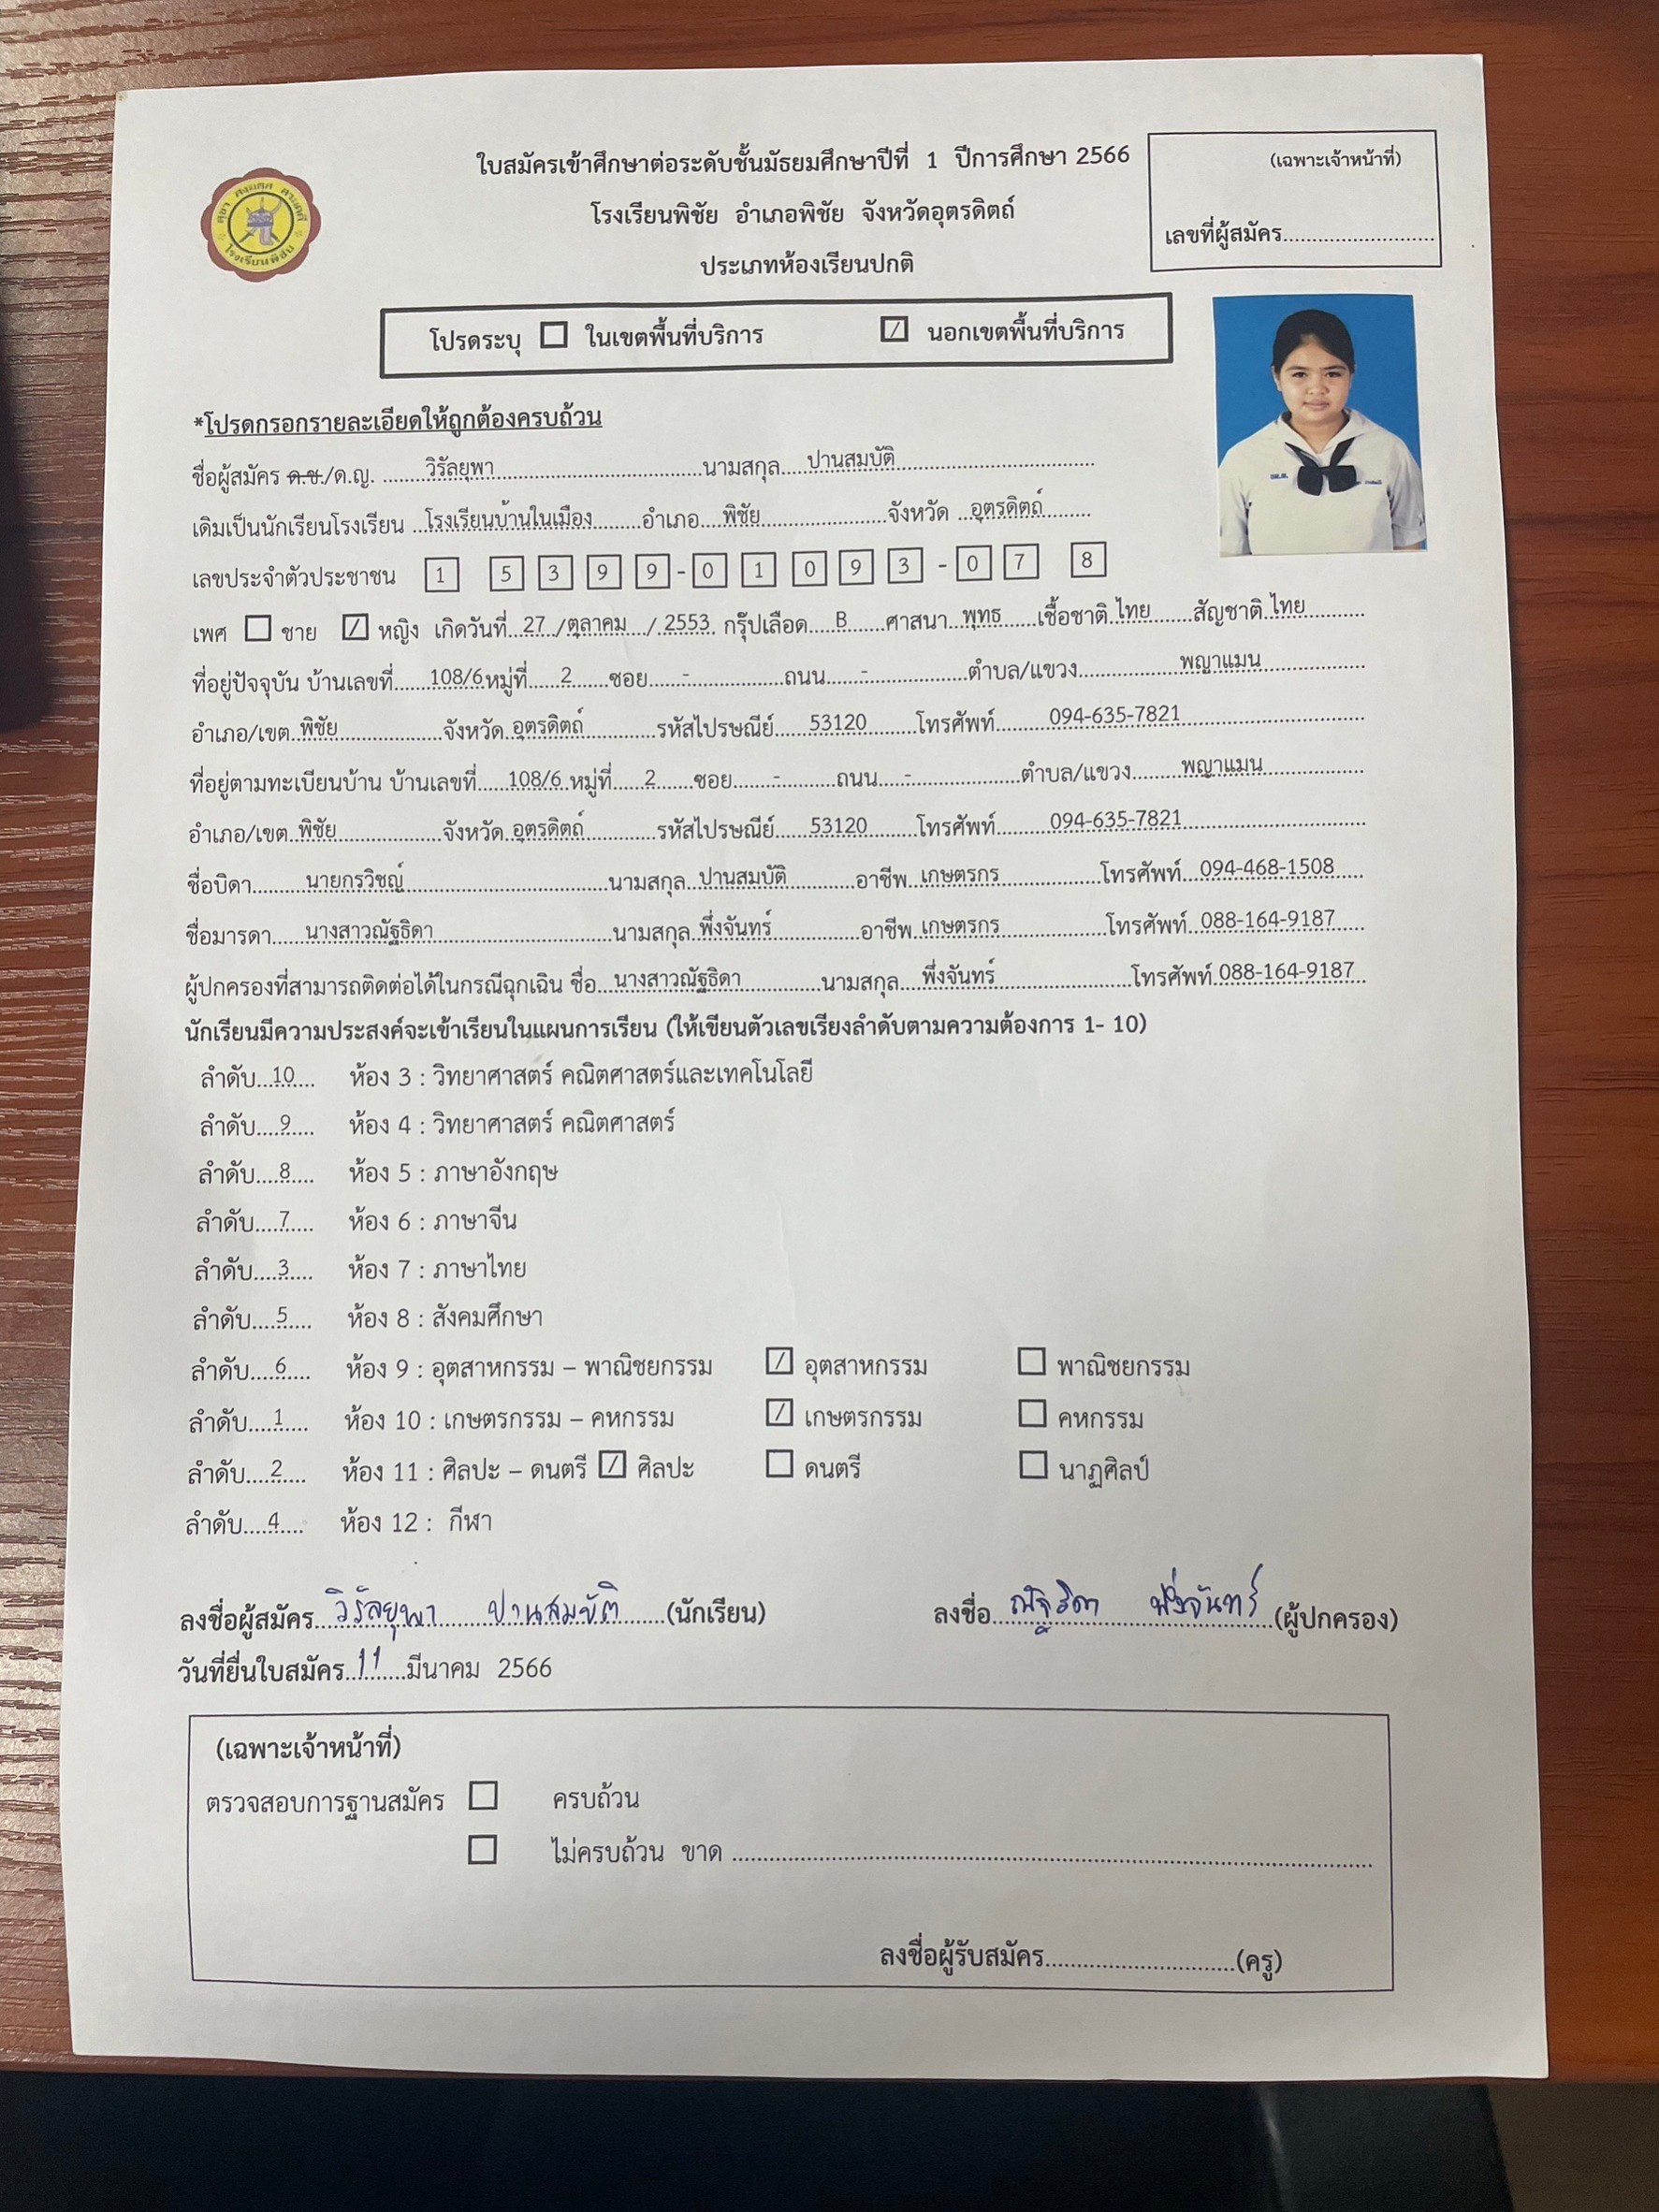 ใบสมัครเข้าศึกษาต่อระดับชั้นมัธยมศึกษาปีที่ 1 ปีการศึกษา 2566
(เฉพาะเจ้าหน้าที่)
โรงเรียนพิชัย อำเภอพิชัย จังหวัดอุตรดิตถ์
เลขที่ผู้สมัคร..........................
ประเภทห้องเรียนปกติ
โรงเรียนพิชัย
โปรดระบุ ☐ ในเขตพื้นที่บริการ ☑ นอกเขตพื้นที่บริการ
*โปรดกรอกรายละเอียดให้ถูกต้องครบถ้วน
ชื่อผู้สมัคร ด.ช./ด.ญ. ........วิรัลยุพา........นามสกุล....ปานสมบัติ........
เดิมเป็นนักเรียนโรงเรียน ..โรงเรียนบ้านในเมือง........อำเภอ...พิชัย........จังหวัด ..อุตรดิตถ์........
เลขประจำตัวประชาชน 1 5 3 9 9 - 0 1 0 9 3 - 0 7 8
เพศ ☐ ชาย ☑ หญิง เกิดวันที่..27../ตุลาคม../..2553. กรุ๊ปเลือด....B......ศาสนา..พุทธ....เชื้อชาติ.ไทย......สัญชาติ.ไทย........
ที่อยู่ปัจจุบัน บ้านเลขที่.....108/6หมู่ที่....2.....ซอย....-........ถนน....-........ตำบล/แขวง........พญาแมน........
อำเภอ/เขต.พิชัย........จังหวัด.อุตรดิตถ์........รหัสไปรษณีย์....53120......โทรศัพท์......094-635-7821........
ที่อยู่ตามทะเบียนบ้าน บ้านเลขที่....108/6.หมู่ที่....2.....ซอย.....-......ถนน...-........ตำบล/แขวง......พญาแมน........
อำเภอ/เขต.พิชัย........จังหวัด.อุตรดิตถ์........รหัสไปรษณีย์....53120......โทรศัพท์......094-635-7821........
ชื่อบิดา......นายกรวิชญ์........นามสกุล..ปานสมบัติ........อาชีพ..เกษตรกร........โทรศัพท์..094-468-1508....
ชื่อมารดา....นางสาวณัฐธิดา........นามสกุล.พึ่งจันทร์........อาชีพ.เกษตรกร........โทรศัพท์..088-164-9187....
ผู้ปกครองที่สามารถติดต่อได้ในกรณีฉุกเฉิน ชื่อ..นางสาวณัฐธิดา........นามสกุล...พึ่งจันทร์........โทรศัพท์.088-164-9187..
นักเรียนมีความประสงค์จะเข้าเรียนในแผนการเรียน (ให้เขียนตัวเลขเรียงลำดับตามความต้องการ 1- 10)
ลำดับ..10.... ห้อง 3 : วิทยาศาสตร์ คณิตศาสตร์และเทคโนโลยี
ลำดับ....9.... ห้อง 4 : วิทยาศาสตร์ คณิตศาสตร์
ลำดับ....8.... ห้อง 5 : ภาษาอังกฤษ
ลำดับ....7.... ห้อง 6 : ภาษาจีน
ลำดับ....3.... ห้อง 7 : ภาษาไทย
ลำดับ....5.... ห้อง 8 : สังคมศึกษา
ลำดับ....6.... ห้อง 9 : อุตสาหกรรม – พาณิชยกรรม ☑ อุตสาหกรรม ☐ พาณิชยกรรม
ลำดับ....1.... ห้อง 10 : เกษตรกรรม – คหกรรม ☑ เกษตรกรรม ☐ คหกรรม
ลำดับ....2.... ห้อง 11 : ศิลปะ – ดนตรี ☑ ศิลปะ ☐ ดนตรี ☐ นาฏศิลป์
ลำดับ....4.... ห้อง 12 : กีฬา
ลงชื่อผู้สมัคร..วิรัลยุพา ปานสมบัติ......(นักเรียน) ลงชื่อ..ณัฐธิดา พึ่งจันทร์..(ผู้ปกครอง)
วันที่ยื่นใบสมัคร..11.....มีนาคม 2566
(เฉพาะเจ้าหน้าที่)
ตรวจสอบการฐานสมัคร ☐ ครบถ้วน
☐ ไม่ครบถ้วน ขาด ................................................
ลงชื่อผู้รับสมัคร..............................(ครู)